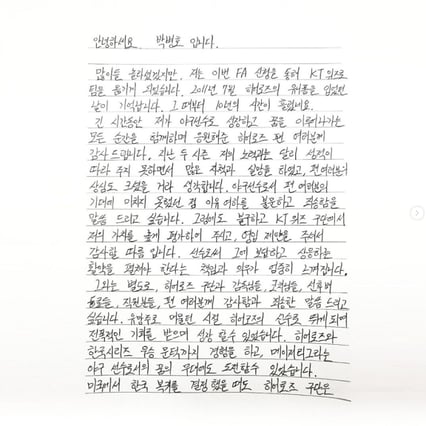 안녕하세요 박병호 입니다.
많이들 놀라셨겠지만, 저는 이번 FA 신청을 통해 KT 위즈로
팀을 옮기게 되었습니다. 2011년 7월 히어로즈의 유니폼을 입었던
날이 기억납니다. 그 때부터 10년의 시간이 흘렀네요.
긴 시간동안 제가 야구선수로 성장하고 꿈을 이루어나가는
모든 순간을 함께하며 응원해주신 히어로즈 팬 여러분께
감사드립니다. 지난 두 시즌 저의 노력과는 달리 성적이
따라 주지 못하면서 많은 자책과 실망을 하였고, 팬 여러분의
상심도 크셨을 거라 생각합니다. 야구선수로서 팬 여러분의
기대에 미치지 못했던 점 이유 여하를 불문하고 죄송함을
말씀 드리고 싶습니다. 그럼에도 불구하고 KT 위즈 구단에서
저의 가치를 높게 평가하여 주시고, 영입 제안을 주셔서
감사할 따름 입니다. 선수로서 그에 보답하고 상응하는
활약을 펼쳐야 한다는 책임과 의무가 엄중히 느껴집니다.
그와는 별도로, 히어로즈 구단과 감독님들, 코치님들, 선후배
동료들, 직원분들, 팬 여러분께 감사함과 죄송한 말씀 드리고
싶습니다. 유망주로 머물던 시절 히어로즈의 선수로 뛰게 되며
전폭적인 기회를 받으며 성장 할 수 있었습니다. 히어로즈와
한국시리즈 우승 문턱까지 경험을 하고, 메이저리그라는
야구 선수로서의 꿈의 무대에도 도전할 수 있었습니다.
미국에서 한국 복귀를 결정 했을 때도 히어로즈 구단은